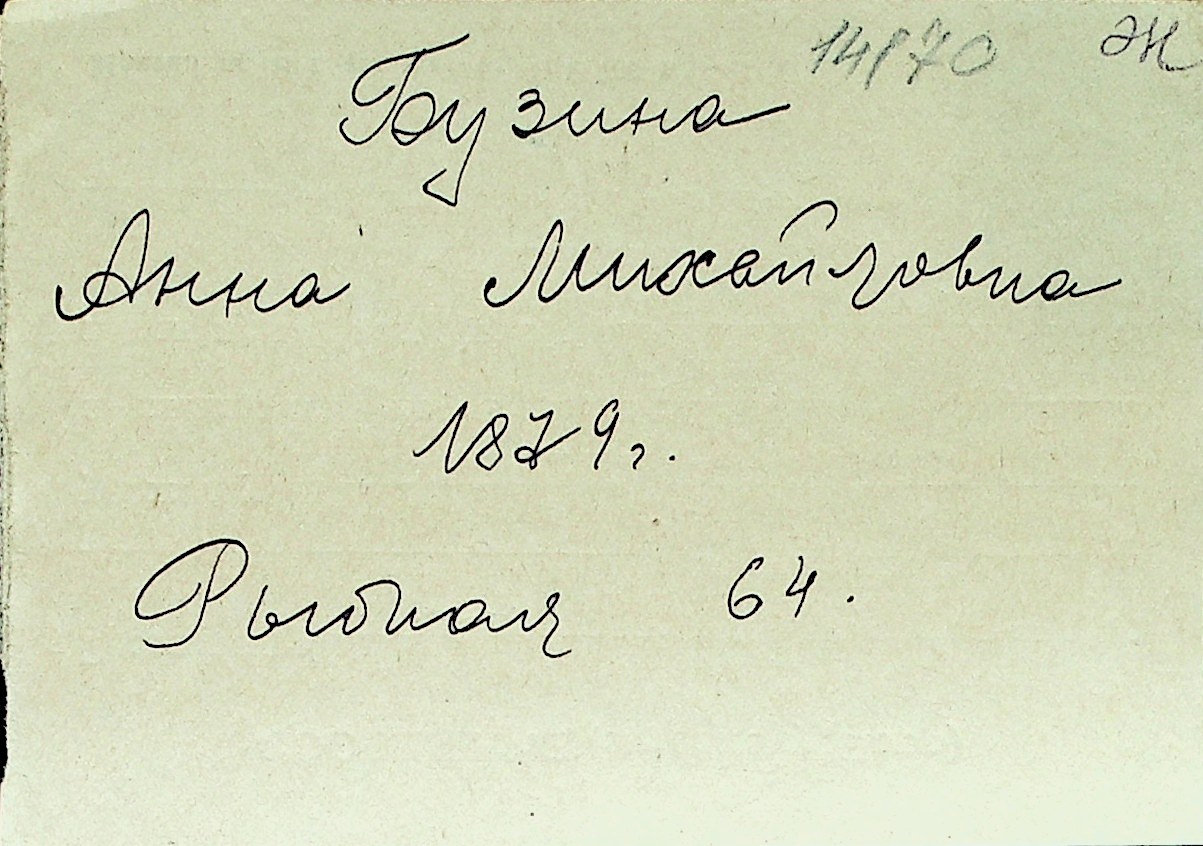 14870 Ж
Бузина
Анна Михайловна
1879 г.
Рыбная 64.